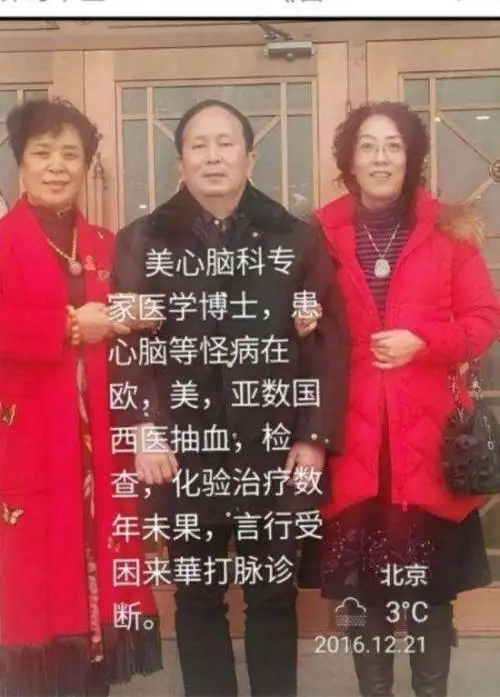 美心脑科专
家医学博士，患
心脑等怪病在
欧，美，亚数国
西医抽血，检
查，化验治疗数
年未果，言行受
困来華打脉诊
断。
北京
3°C
2016.12.21